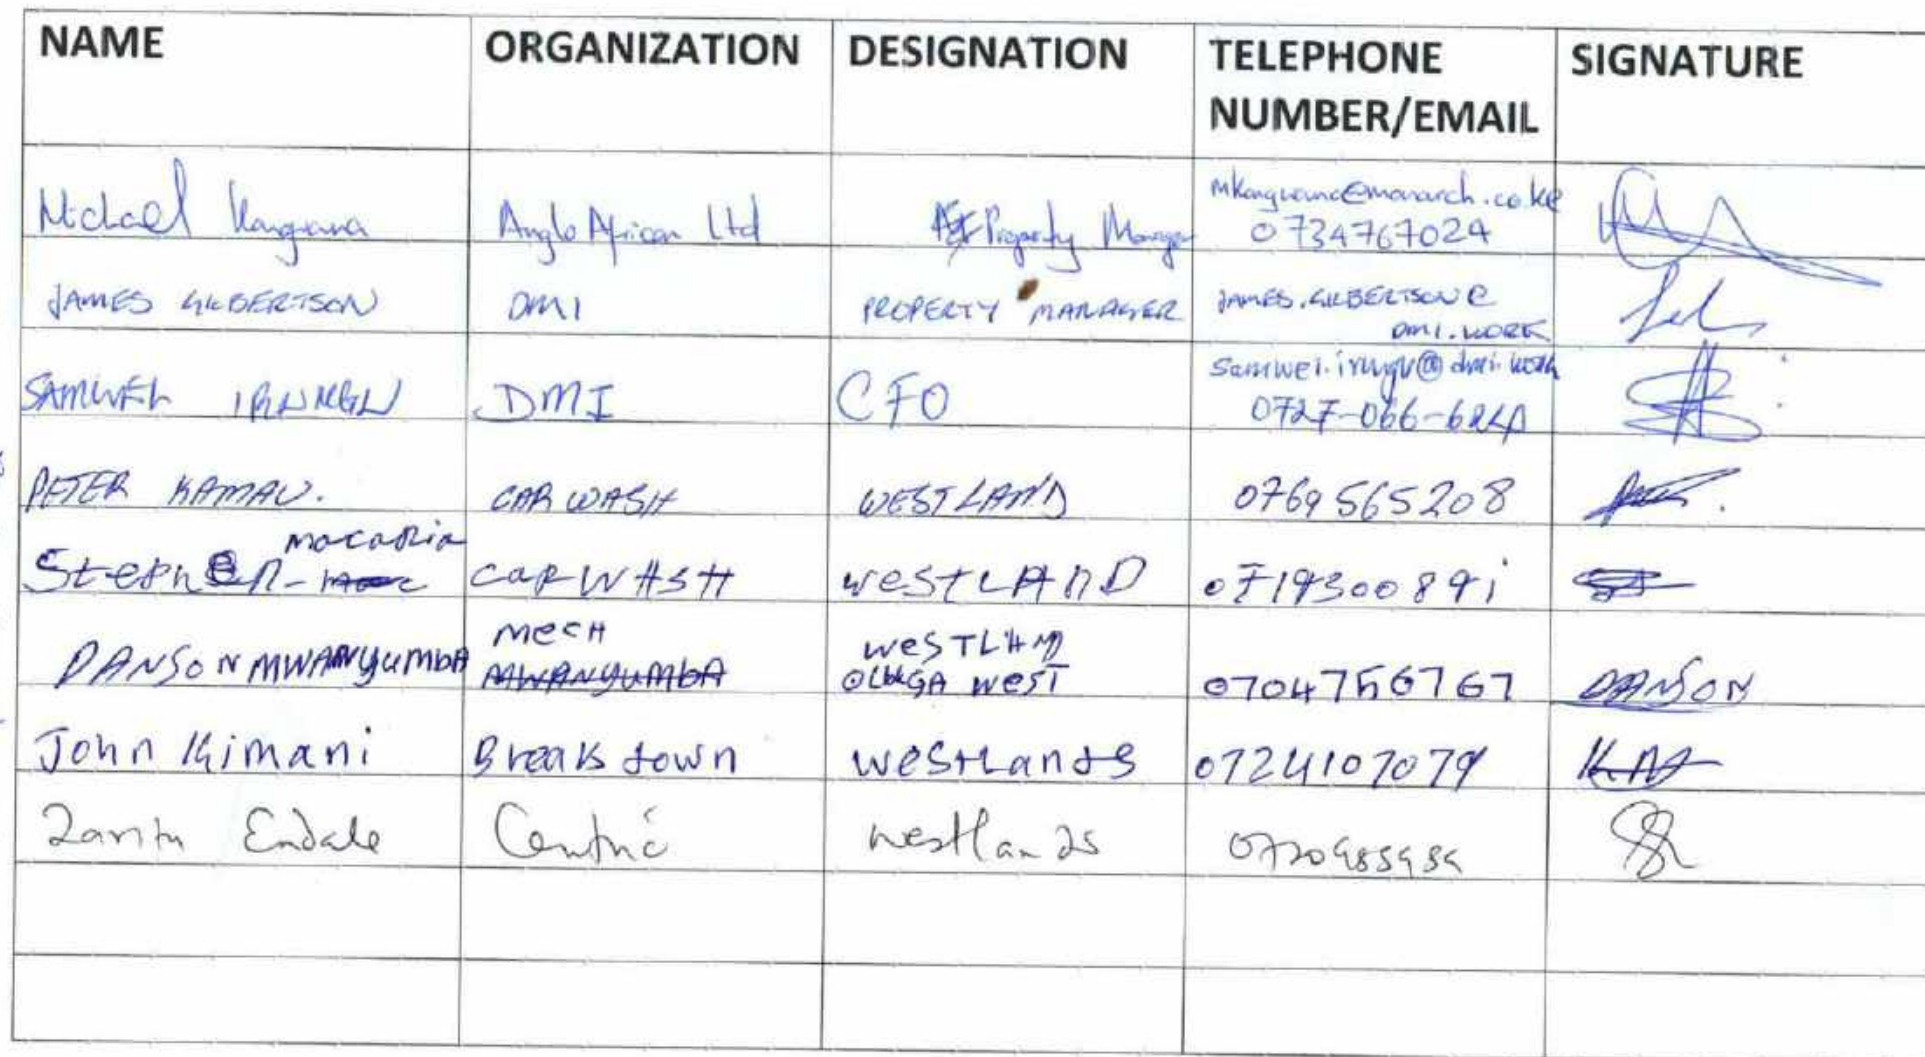 NAME ORGANIZATION DESIGNATION TELEPHONE NUMBER/EMAIL SIGNATURE
Michael Kangwana Anglo African Ltd Property Manager mkangwana@monarch.co.ke 0734767024
JAMES GILBERTSON DMI PROPERTY MANAGER JAMES.GILBERTSON@DMI.WORK
SAMWEL IRUNGU DMI CFO samwel.irungu@dmi.work
PETER KAMAU. CAR WASH WESTLAND 0769565208
Stephen macaria CAR WASH WESTLAND
DANSON MWANYUMBA MECH WESTLAND WEST 0704756767 DANSON
John Kimani Breakdown westlands 0724107079
Endale Centric westlands